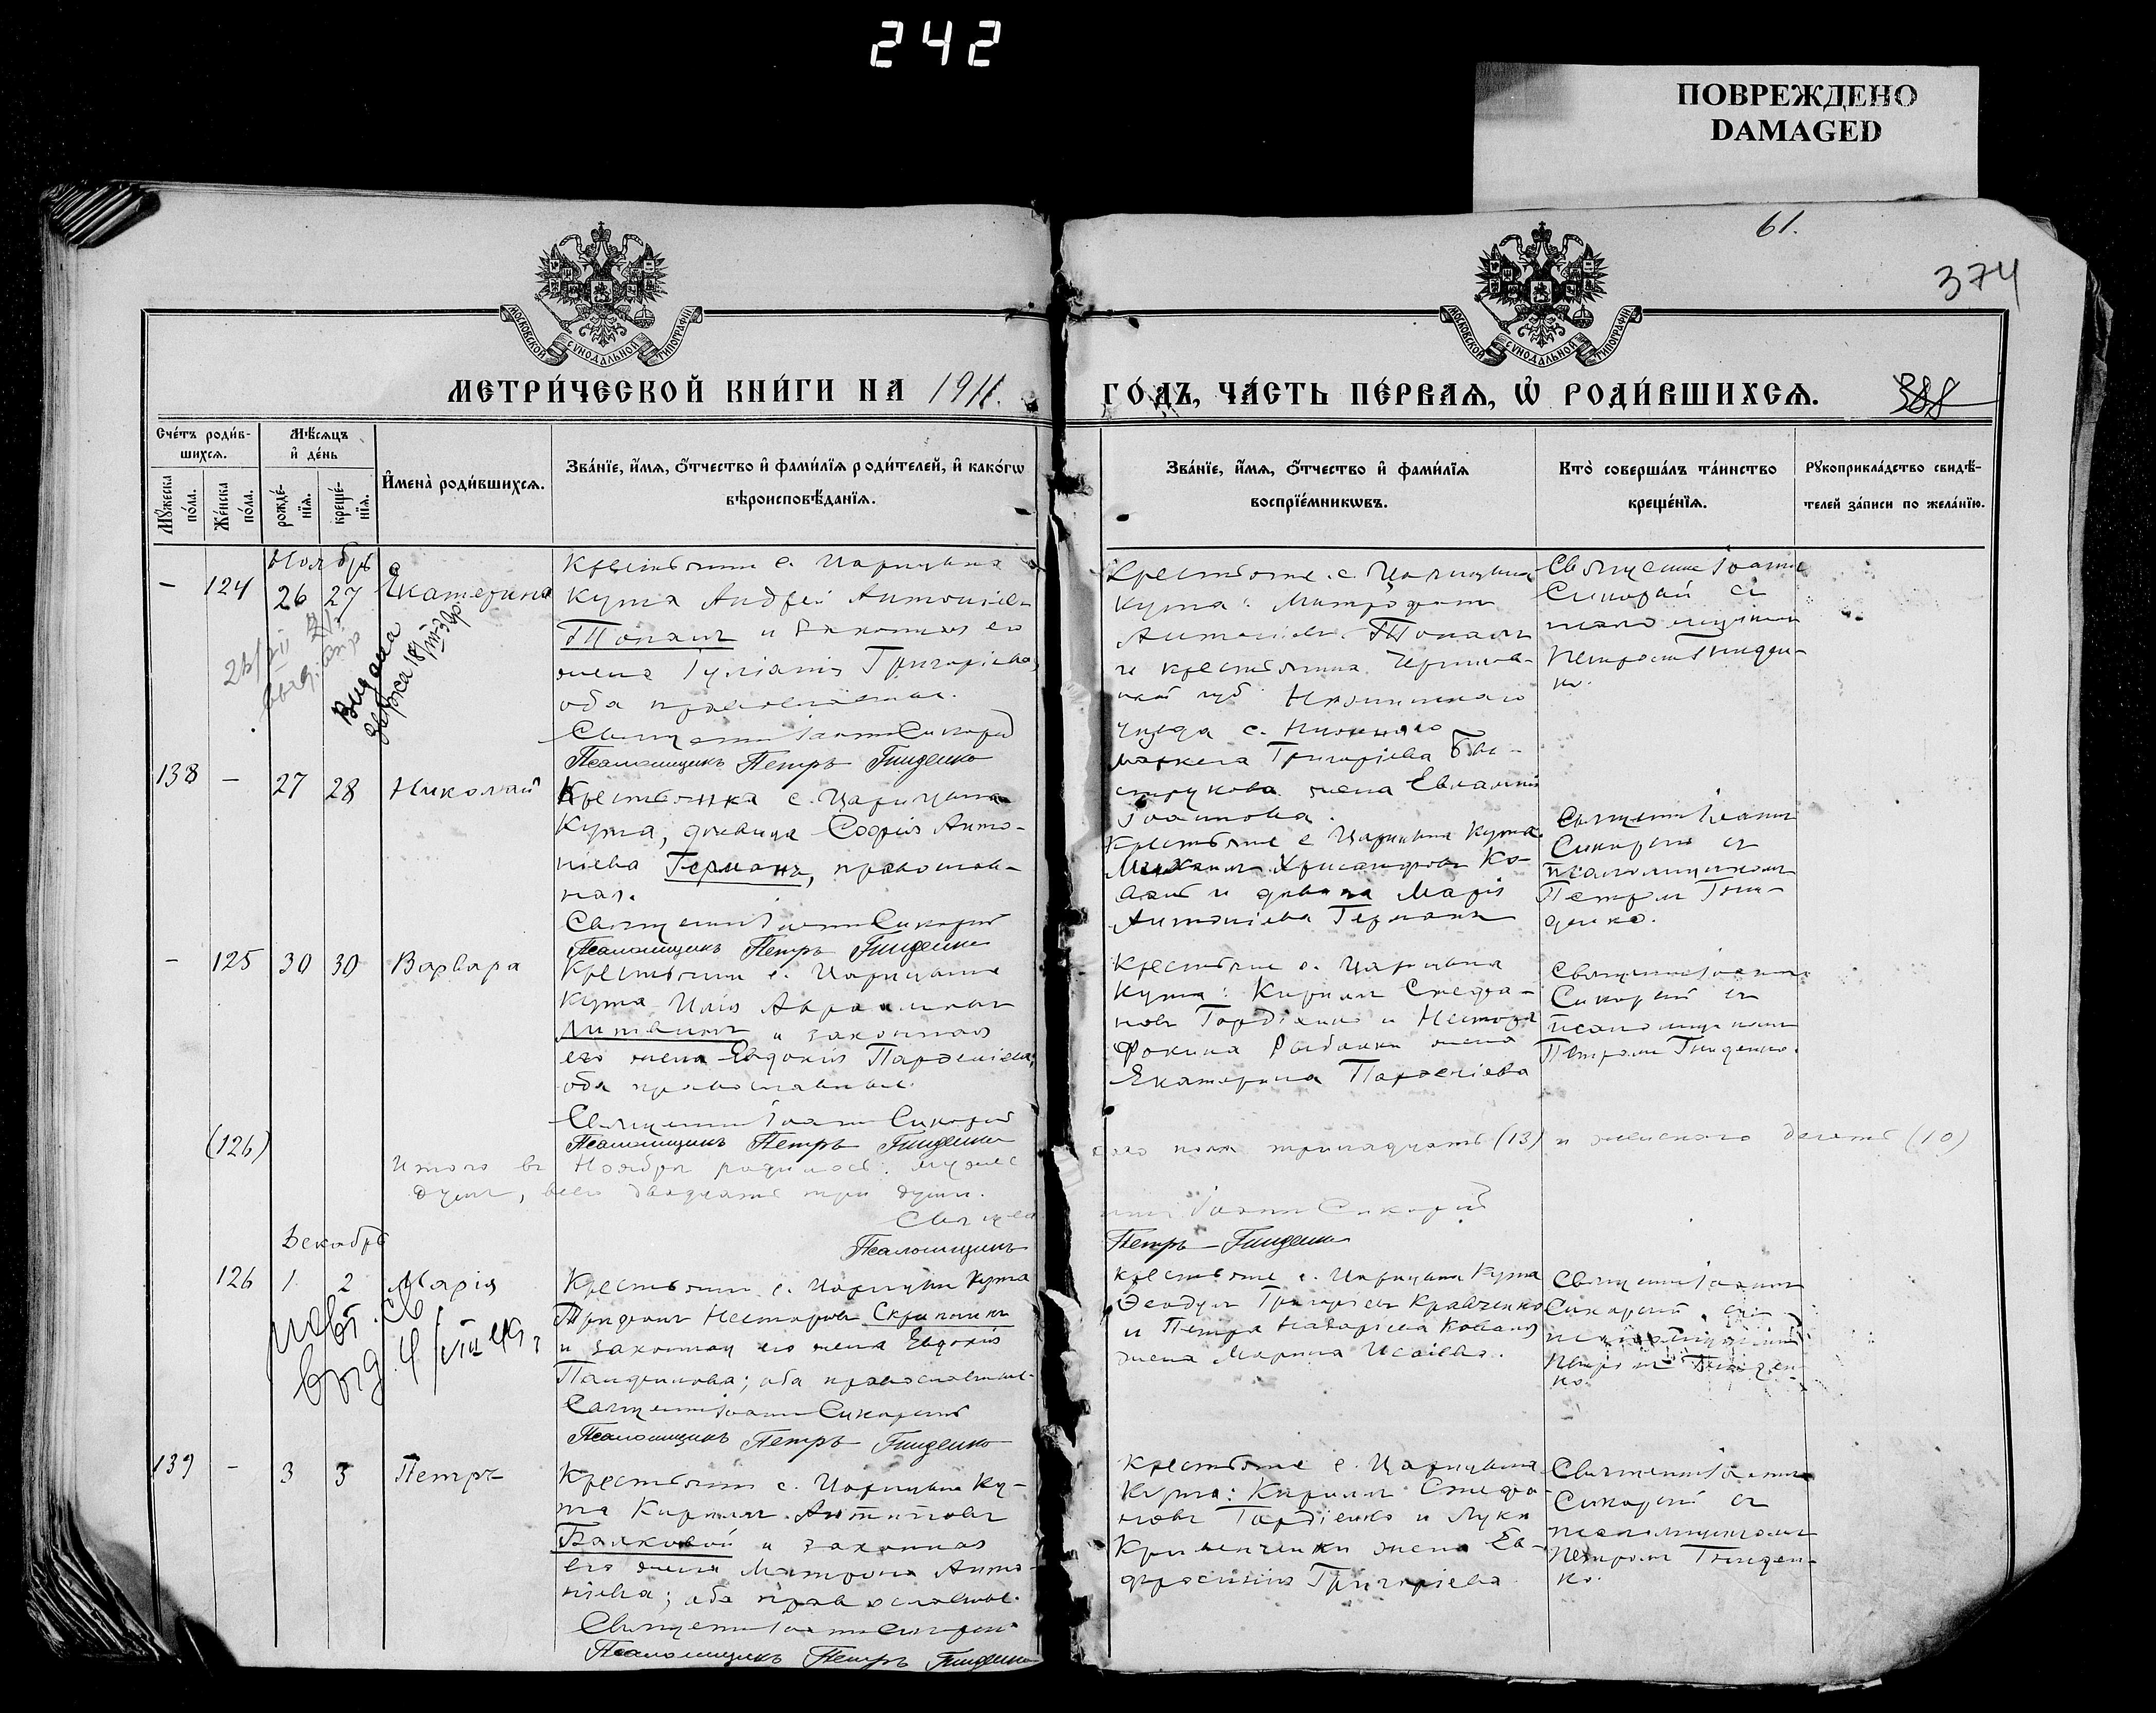 242
ПОВРЕЖДЕНО
DAMAGED
61.
374
МОСКОВСКОЙ СѴНОДАЛЬНОЙ ТИПОГРАФІИ
МОСКОВСКОЙ СѴНОДАЛЬНОЙ ТИПОГРАФІИ
МЕТРИ́ЧЕСКОЙ КНИ́ГИ НА 1911.
ГО́ДЪ, ЧА́СТЬ ПЕ́РВАѦ, Ѡ҆ РОДИ́ВШИХСѦ.
388
Сче́тъ роди́в-
шихсѧ.
Мꙋ́жеска по́ла.
Же́нска по́ла.
Мѣ́сѧцъ
и҆ де́нь
рожде́-
нїѧ.
креще́-
нїѧ.
И҆мена̀ роди́вшихсѧ.
Зва́нїе, и҆́мѧ, ѻ҆́тчество и҆ фами́лїѧ роди́телей, и҆ како́гѡ
вѣроисповѣ́данїѧ.
Зва́нїе, и҆́мѧ, ѻ҆́тчество и҆ фами́лїѧ
воспрїе́мникѡвъ.
Кто̀ соверша́лъ та́инство
креще́нїѧ.
Рꙋкоприкла́дство свидѣ́-
телей за́писи по жела́нїю.
Ноябрь
– 124 26 27 Екатерина
Крестьянин с. Царицына
Кута Андрей Антоніев
Топалъ и законная его
жена Іуліанія Григоріева,
оба православные.
Священник Іоанн Сикорский
Псаломщикъ Петръ Гниденко
Крестьяне с. Царицына
Кута: Митрофанъ
Антоніев Топалъ
и крестьянина Чернигов-
ской губ.
уѣзда с.
Григоріева
жена
Священник Іоаннъ
Сикорский съ
псаломщиком
Петром Гниден-
ко.
Выдана
138 – 27 28 Николай
Крестьянка с. Царицына
Кута, девица Софія Анто-
ніева Германъ, православ-
ная.
Священник Іоанн Сикорский
Псаломщикъ Петръ Гниденко
Крестьяне с. Царицына Кута
Михаил Хрисанфов Ко-
валь и девица Марія
Антоніева Германъ
Священник Іоаннъ
Сикорский съ
псаломщиком
Петром Гни-
денко.
– 125 30 30 Варвара
Крестьянин с. Царицына
Кута Илія Авраамов
Литвинъ и законная
его жена Евдокія Парѳеніева,
оба православные.
Священник Іоанн Сикорский
Псаломщикъ Петръ Гниденко
Крестьяне с. Царицына
Кута: Кирилл Стефа-
новъ Гордіенко и Нестора
Фокина Рыбалки жена
Екатерина Парѳеніева
Священник Іоаннъ
Сикорский съ
псаломщиком
Петром Гниденко.
(126)
Итого въ Ноябрѣ родилось: мужес
кого пола тринадцать (13) и женского десять (10)
душъ, всего двадцать три души.
Священ
ник Іоанн Сикорский
Псаломщикъ
Петръ Гниденко
Декабрь
126 1 2 Марія
Крестьянин с. Царицына Кута
Трифон Несторов Скрипникъ
и законная его жена Евдокія
оба православные.
Священник Іоанн Сикорский
Псаломщикъ Петръ Гниденко
Крестьяне с. Царицына Кута
Ѳеодул Григоріев Кравченко
и Петра Назаріева Коваля
жена Марина Исаіева.
Священник Іоаннъ
Сикорский съ
псаломщиком
Петром Гниден-
ко.
139 – 3 3 Петръ
Крестьянин с. Царицына Ку-
та Кирилл Антипов
Балковой и законная
его жена Матрона Анто-
ніева; оба православные.
Священник Іоанн Сикорский
Псаломщикъ Петръ Гниденко
Крестьяне с. Царицына
Кута: Кирилл Стефа-
новъ Гордіенко и Луки
Кременчики жена Ев-
фросинія Григоріева
Священник Іоаннъ
Сикорский съ
псаломщиком
Петром Гниден-
ко.